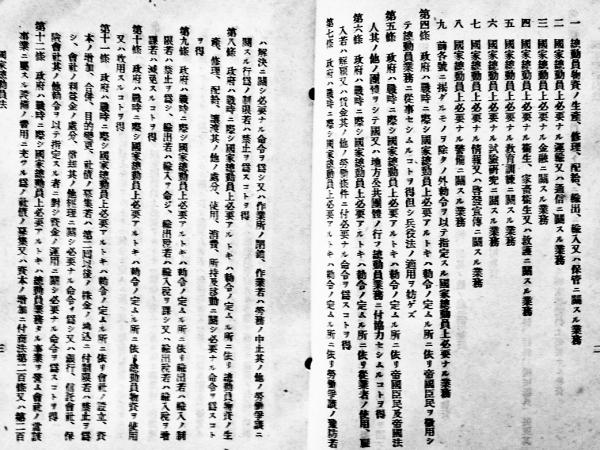 一　總動員物資ノ生產、修理、配給、輸出、輸入又ハ保管ニ關スル業務
二　國家總動員上必要ナル運輸又ハ通信ニ關スル業務
三　國家總動員上必要ナル金融ニ關スル業務
四　國家總動員上必要ナル衞生、家畜衞生又ハ救護ニ關スル業務
五　國家總動員上必要ナル敎育訓練ニ關スル業務
六　國家總動員上必要ナル試驗硏究ニ關スル業務
七　國家總動員上必要ナル情報又ハ啓發宣傳ニ關スル業務
八　國家總動員上必要ナル警備ニ關スル業務
九　前各號ニ揭グルモノヲ除クノ外勅令ヲ以テ指定スル國家總動員上必要ナル業務
第四條　政府ハ戰時ニ際シ國家總動員上必要アルトキハ勅令ノ定ムル所ニ依リ帝國臣民ヲ徵用シ
テ總動員業務ニ從事セシムルコトヲ得但シ兵役法ノ適用ヲ妨ゲズ
第五條　政府ハ戰時ニ際シ國家總動員上必要アルトキハ勅令ノ定ムル所ニ依リ帝國臣民及帝國法
人其ノ他ノ團體ヲシテ國又ハ地方公共團體ノ行フ總動員業務ニ付協力セシムルコトヲ得
第六條　政府ハ戰時ニ際シ國家總動員上必要アルトキハ勅令ノ定ムル所ニ依リ從業者ノ使用、雇
入若ハ解雇又ハ賃金其ノ他ノ勞働條件ニ付必要ナル命令ヲ爲スコトヲ得
第七條　政府ハ戰時ニ際シ國家總動員上必要アルトキハ勅令ノ定ムル所ニ依リ勞働爭議ノ豫防若
ハ解決ニ關シ必要ナル命令ヲ爲シ又ハ作業所ノ閉鎖、作業若ハ勞務ノ中止其ノ他ノ勞働爭議ニ
關スル行爲ノ制限若ハ禁止ヲ爲スコトヲ得
第八條　政府ハ戰時ニ際シ國家總動員上必要アルトキハ勅令ノ定ムル所ニ依リ總動員物資ノ生
產、修理、配給、讓渡其ノ他ノ處分、使用、消費、所持及移動ニ關シ必要ナル命令ヲ爲スコト
ヲ得
第九條　政府ハ戰時ニ際シ國家總動員上必要アルトキハ勅令ノ定ムル所ニ依リ輸出若ハ輸入ノ制
限若ハ禁止ヲ爲シ、輸出若ハ輸入ヲ命ジ、輸出稅若ハ輸入稅ヲ課シ又ハ輸出稅若ハ輸入稅ヲ增
課若ハ減免スルコトヲ得
第十條　政府ハ戰時ニ際シ國家總動員上必要アルトキハ勅令ノ定ムル所ニ依リ總動員物資ヲ使用
又ハ收用スルコトヲ得
第十一條　政府ハ戰時ニ際シ國家總動員上必要アルトキハ勅令ノ定ムル所ニ依リ會社ノ設立、資
本ノ增加、合倂、目的變更、社債ノ募集若ハ第二囘以後ノ株金ノ拂込ニ付制限若ハ禁止ヲ爲
シ、會社ノ利益金ノ處分、償却其ノ他經理ニ關シ必要ナル命令ヲ爲シ又ハ銀行、信託會社、保
險會社其ノ他勅令ヲ以テ指定スル者ニ對シ資金ノ運用ニ關シ必要ナル命令ヲ爲スコトヲ得
第十二條　政府ハ戰時ニ際シ國家總動員上必要アルトキハ總動員業務タル事業ヲ營ム會社ノ當該
事業ニ屬スル設備ノ費用ニ充ツル爲ノ社債ノ募集又ハ資本ノ增加ニ付商法第二百條又ハ第二百
國家總動員法